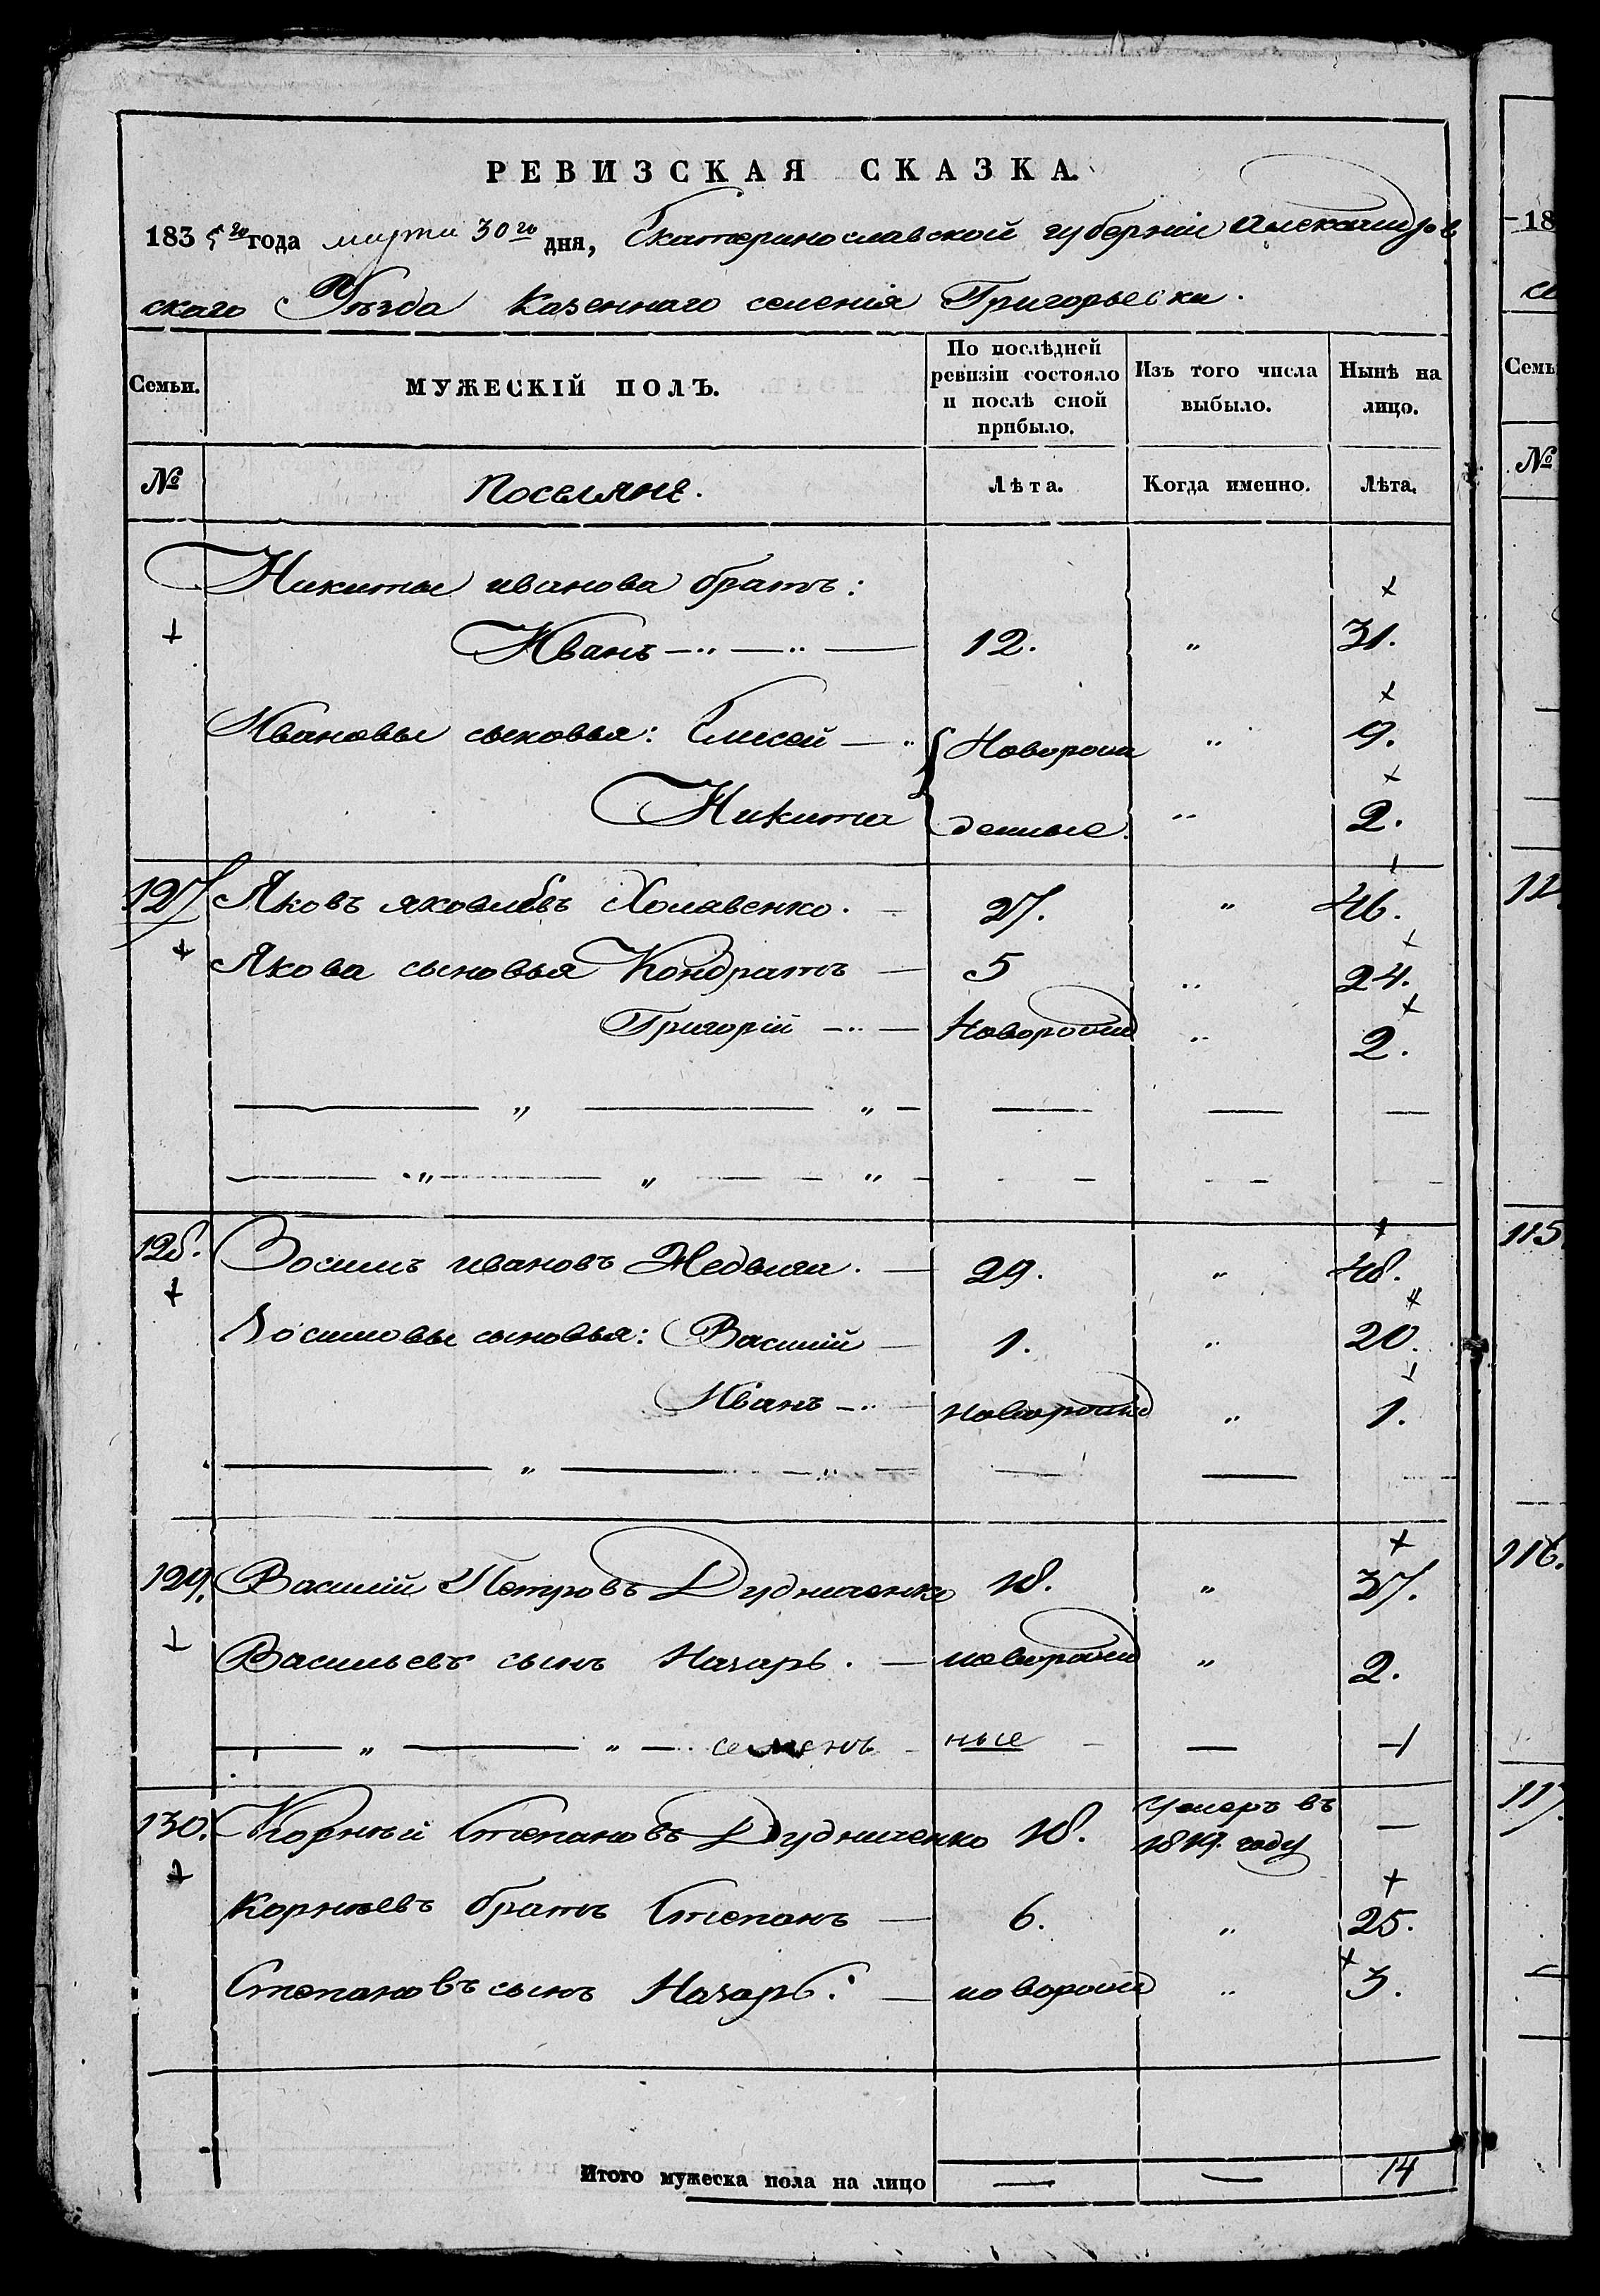 РЕВИЗСКАЯ СКАЗКА.
1835го года марта 30го дня, Екатеринославской губерніи Александров
скаго Уѣзда Казеннаго селенія Григорьевки.
Семьи. МУЖЕСКІЙ ПОЛЪ. По послѣдней ревизіи состояло и послѣ оной прибыло. Изъ того числа выбыло. Нынѣ на лицо.
№ Поселяне. Лѣта. Когда именно. Лѣта.
Никиты иванова братъ:
Иванъ 12. " 31.
Ивановы сыновья: Елисей Новорож " 9.
Никита денные. " 2.
127 Яковъ яковлевъ Холавенко. 27. " 46.
Якова сыновья Кондратъ 5 " 24.
Григорій Новорожд " 2.
128. Зосимъ ивановъ 29. " 48.
Зосимовы сыновья: Василій 1. " 20.
Иванъ новорожд " 1.
129. Василій Петровъ Дудниченко 18. " 37.
Васильевъ сынъ Назаръ. новорожд " 2.
семенъ ные — 1
130. Корнѣй Степановъ Дудниченко 18. Умеръ въ 1819. году —
Корнѣевъ братъ Степанъ 6. " 25.
Степановъ сынъ Назаръ. новорожд " 3.
Итого мужеска пола на лицо — — 14
18
Семь
№
115
116.
117.